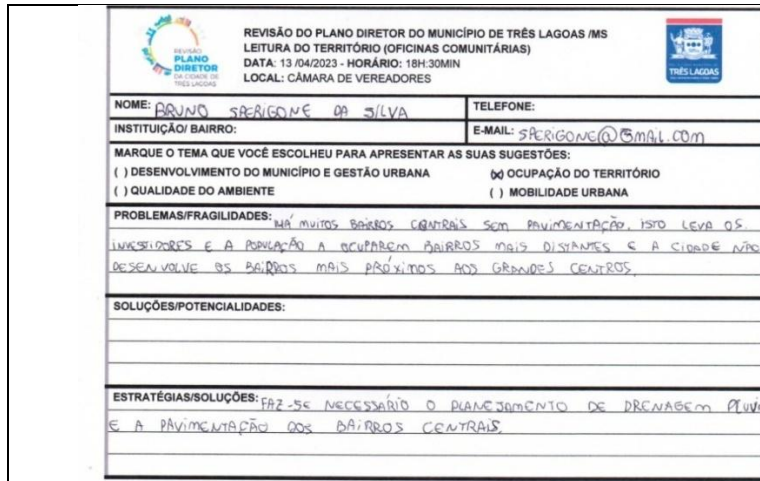 REVISÃO
PLANO
DIRETOR
DA CIDADE DE
TRÊS LAGOAS
REVISÃO DO PLANO DIRETOR DO MUNICÍPIO DE TRÊS LAGOAS /MS
LEITURA DO TERRITÓRIO (OFICINAS COMUNITÁRIAS)
DATA: 13 /04/2023 - HORÁRIO: 18H:30MIN
LOCAL: CÂMARA DE VEREADORES
TRÊS LAGOAS
NOME: BRUNO SPERIGONE DA SILVA
TELEFONE:
INSTITUIÇÃO/ BAIRRO:
E-MAIL: SPERIGONE@GMAIL.COM
MARQUE O TEMA QUE VOCÊ ESCOLHEU PARA APRESENTAR AS SUAS SUGESTÕES:
( ) DESENVOLVIMENTO DO MUNICÍPIO E GESTÃO URBANA
(X) OCUPAÇÃO DO TERRITÓRIO
( ) QUALIDADE DO AMBIENTE
( ) MOBILIDADE URBANA
PROBLEMAS/FRAGILIDADES: HÁ MUITOS BAIRROS CENTRAIS SEM PAVIMENTAÇÃO, ISTO LEVA OS
INVESTIDORES E A POPULAÇÃO A OCUPAREM BAIRROS MAIS DISTANTES E A CIDADE NÃO
DESENVOLVE OS BAIRROS MAIS PRÓXIMOS AOS GRANDES CENTROS.
SOLUÇÕES/POTENCIALIDADES:
ESTRATÉGIAS/SOLUÇÕES: FAZ-SE NECESSÁRIO O PLANEJAMENTO DE DRENAGEM PLUVI
E A PAVIMENTAÇÃO DOS BAIRROS CENTRAIS.